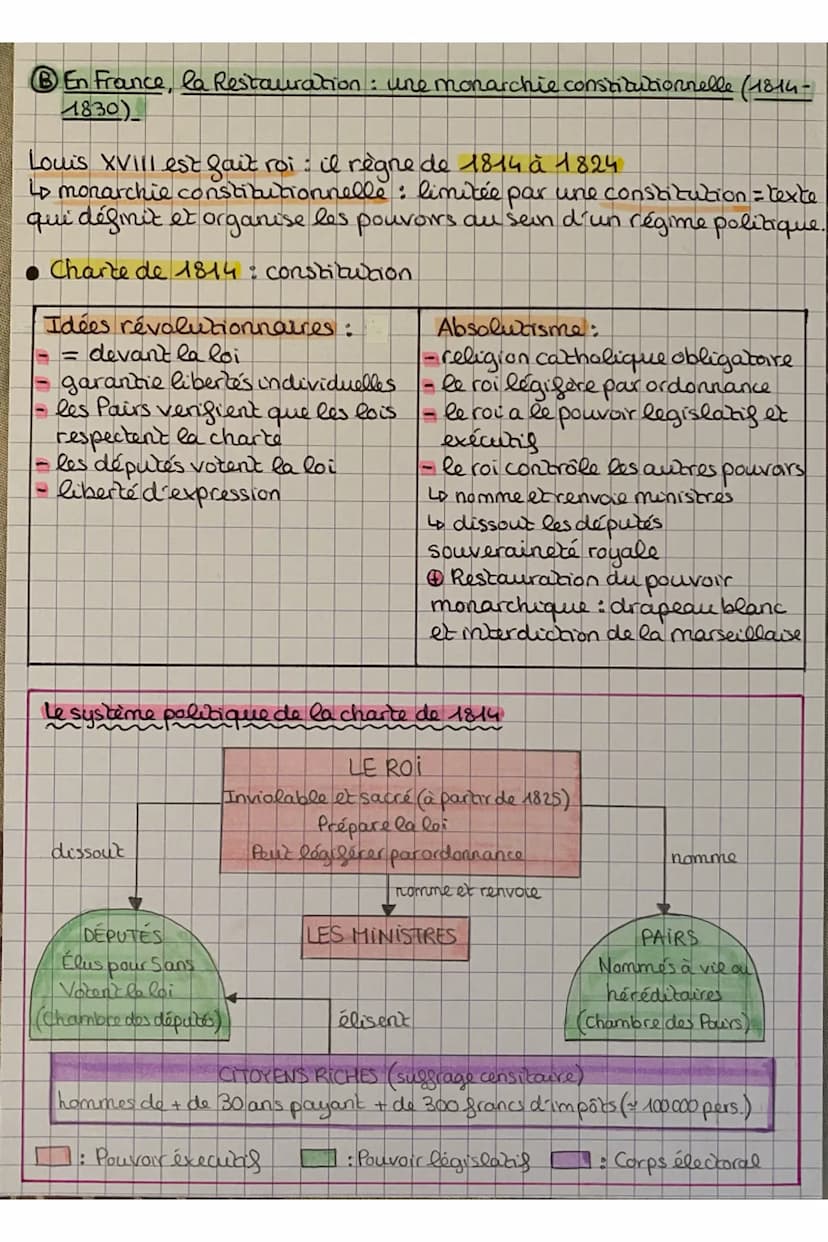 Ⓑ En France, la Restauration : une monarchie constitutionnelle (1814-
1830)
Louis XVIII est fait roi : il règne de 1814 à 1824
↳ monarchie constitutionnelle : limitée par une constitution = texte
qui définit et organise les pouvoirs au sein d'un régime politique.
• Charte de 1814 : constitution
Idées révolutionnaires :
- = devant la loi
- garantie libertés individuelles
- les Pairs verifient que les lois
respectent la charte
- les députés votent la loi
- liberté d'expression
Absolutisme :
- religion catholique obligatoire
- le roi légifère par ordonnance
- le roi a le pouvoir legislatif et
exécutif
- le roi contrôle les autres pouvoirs
↳ nomme et renvoie ministres
↳ dissout les députés
souveraineté royale
⊕ Restauration du pouvoir
monarchique : drapeau blanc
et interdiction de la marseillaise
Le système politique de la charte de 1814
LE ROi
Inviolable et sacré (à partir de 1825)
Prépare la loi
Peut légiférer par ordonnance
dissout
nomme
nomme et renvoie
DÉPUTÉS
Élus pour 5 ans
Votent la loi
(Chambre des députés)
LES MINISTRES
PAIRS
Nommés à vie ou
héréditaires
(Chambre des Pairs)
élisent
CITOYENS RICHES (suffrage censitaire)
hommes de + de 30 ans payant + de 300 francs d'impôts (≃ 100 000 pers.)
: Pouvoir éxecutif
: Pouvoir législatif
: Corps électoral